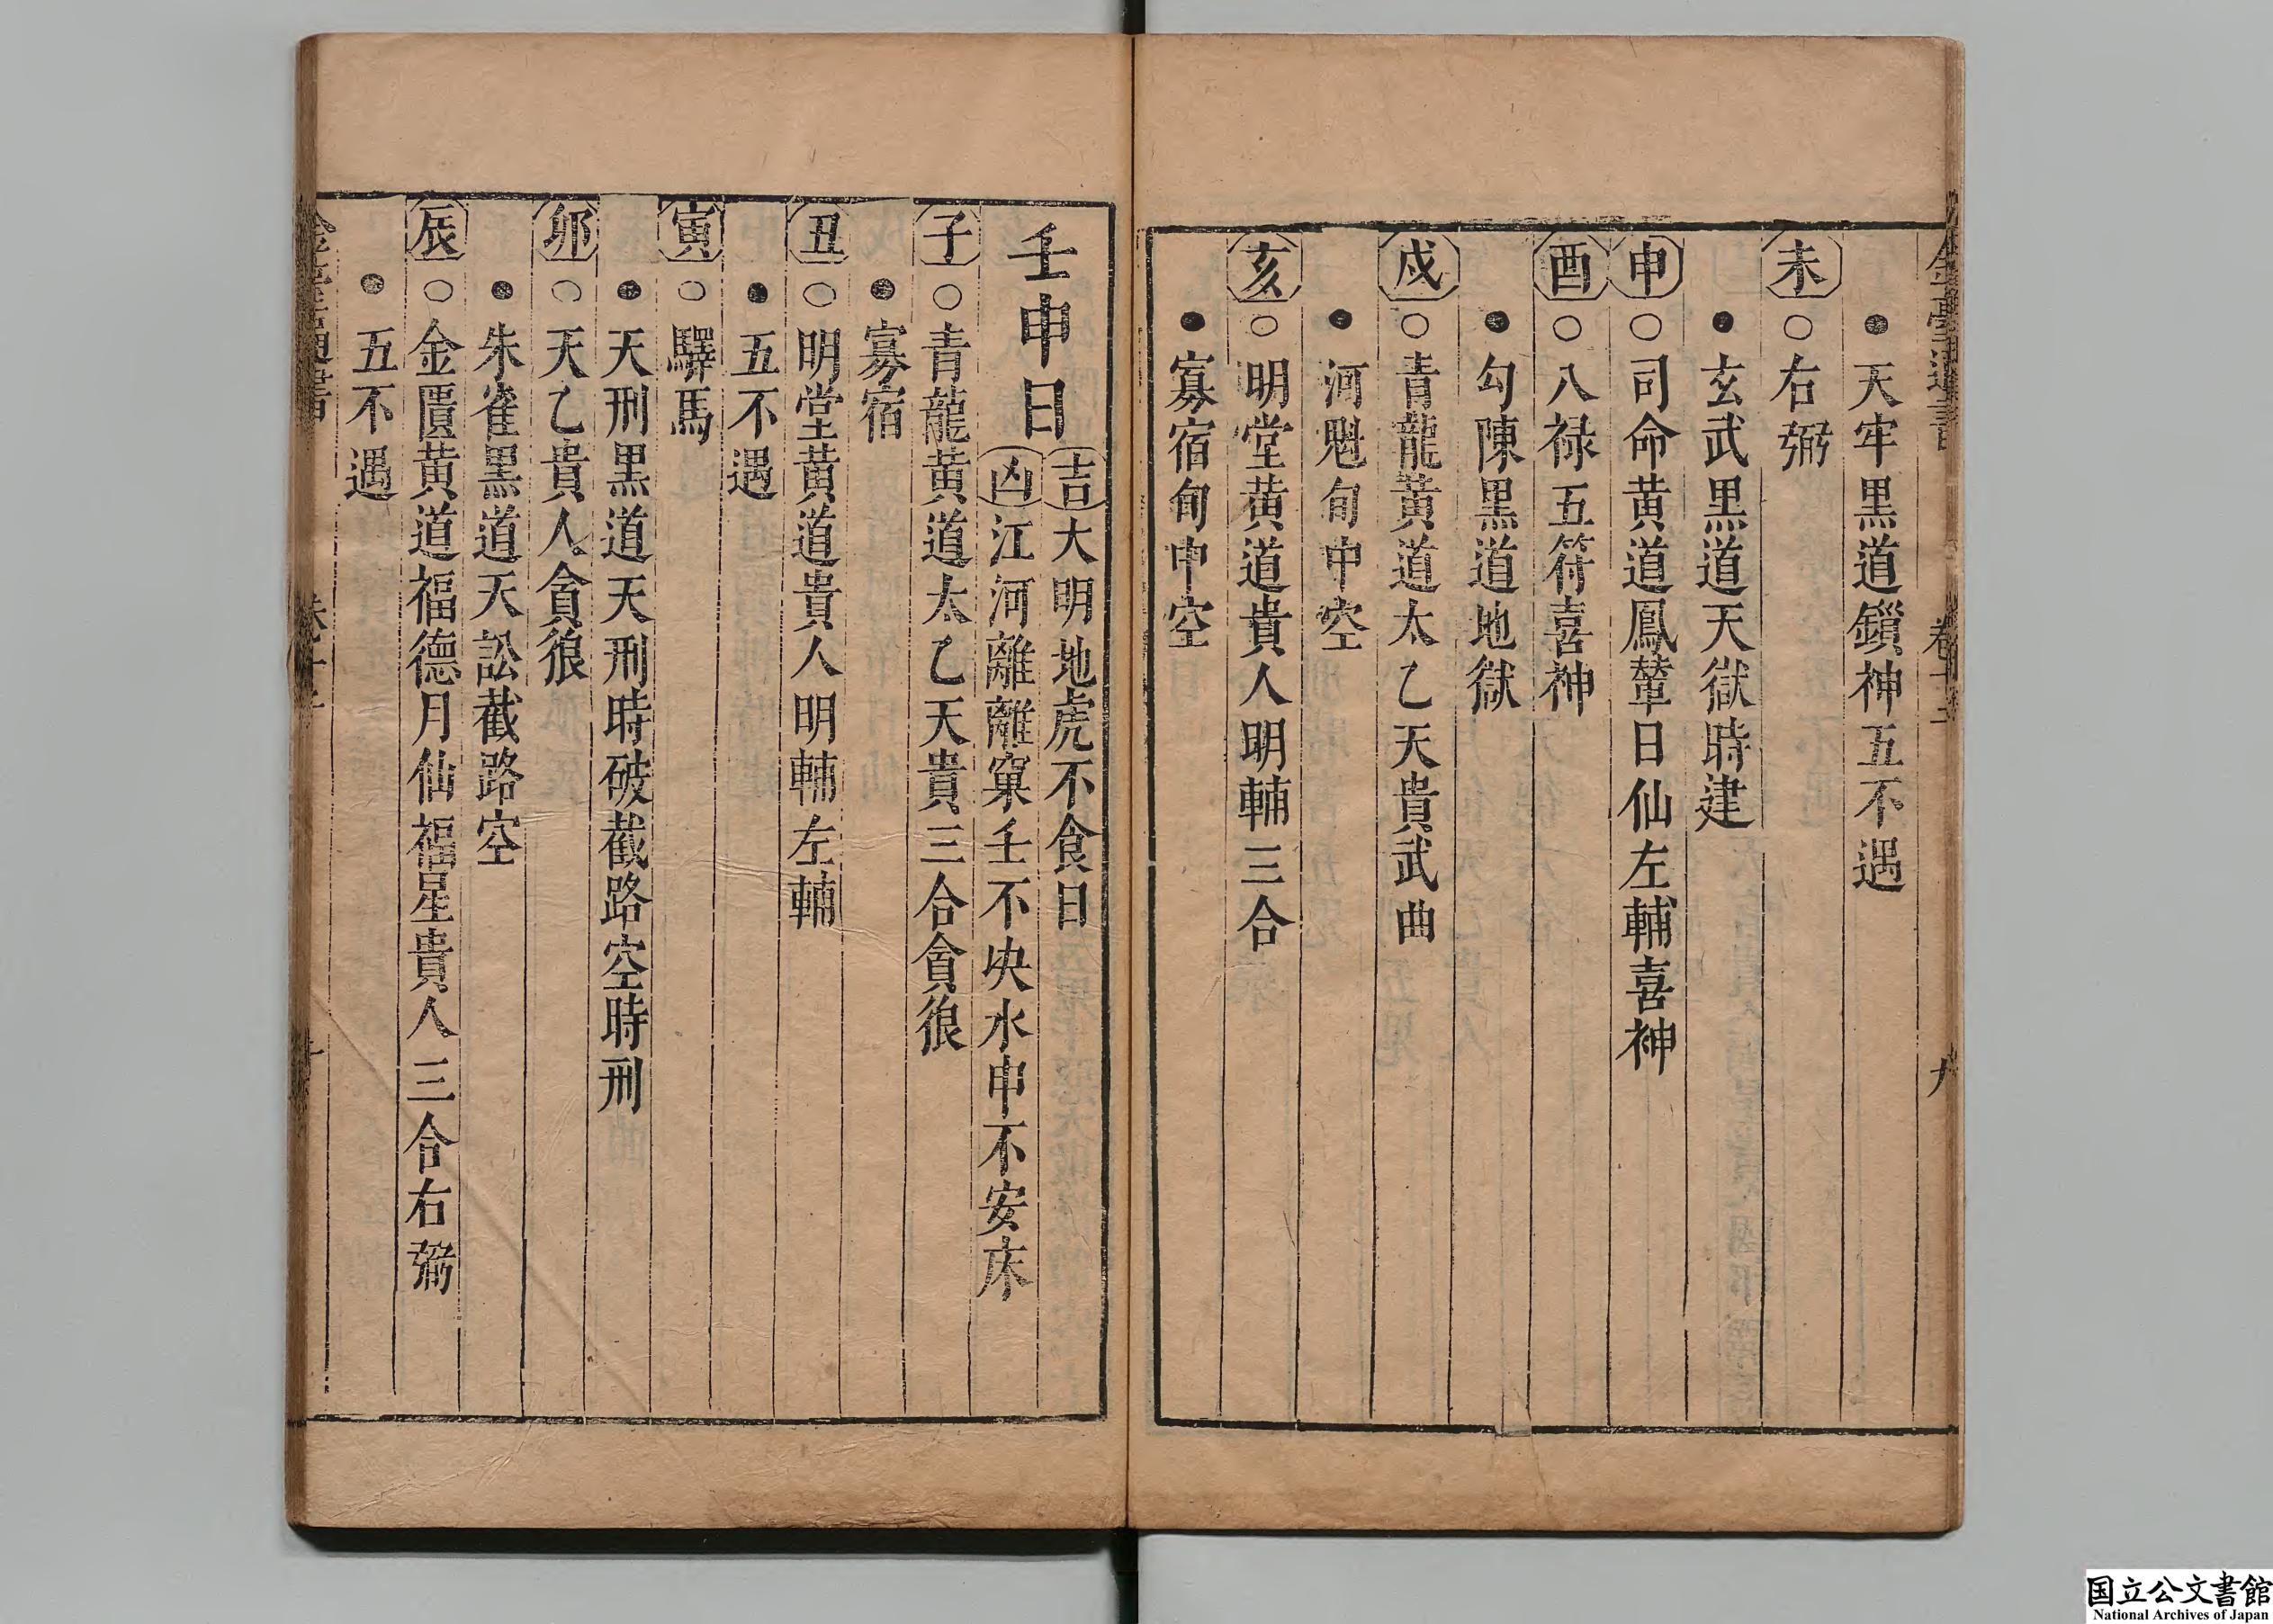 金臺通書　卷十二　九
●天牢黑道鎖神五不遇
未○右弼
●玄武黑道天獄時建
申○司命黄道鳳輦日仙左輔喜神
酉○八禄五符喜神
●勾陳黑道地獄
戌○青龍黄道太乙天貴武曲
●河魁旬中空
亥○明堂黄道貴人明輔三合
●寡宿旬中空
壬申日
吉大明地虎不食日
凶江河離離窠壬不决水申不安床
子○青龍黄道太乙天貴三合貪狼
●寡宿
丑○明堂黄道貴人明輔左輔
●五不遇
寅○驛馬
●天刑黑道天刑時破截路空時刑
卯○天乙貴人貪狼
●朱雀黑道天訟截路空
辰○金匱黄道福德月仙福星貴人三合右弼
●五不遇
国立公文書館
National Archives of Japan